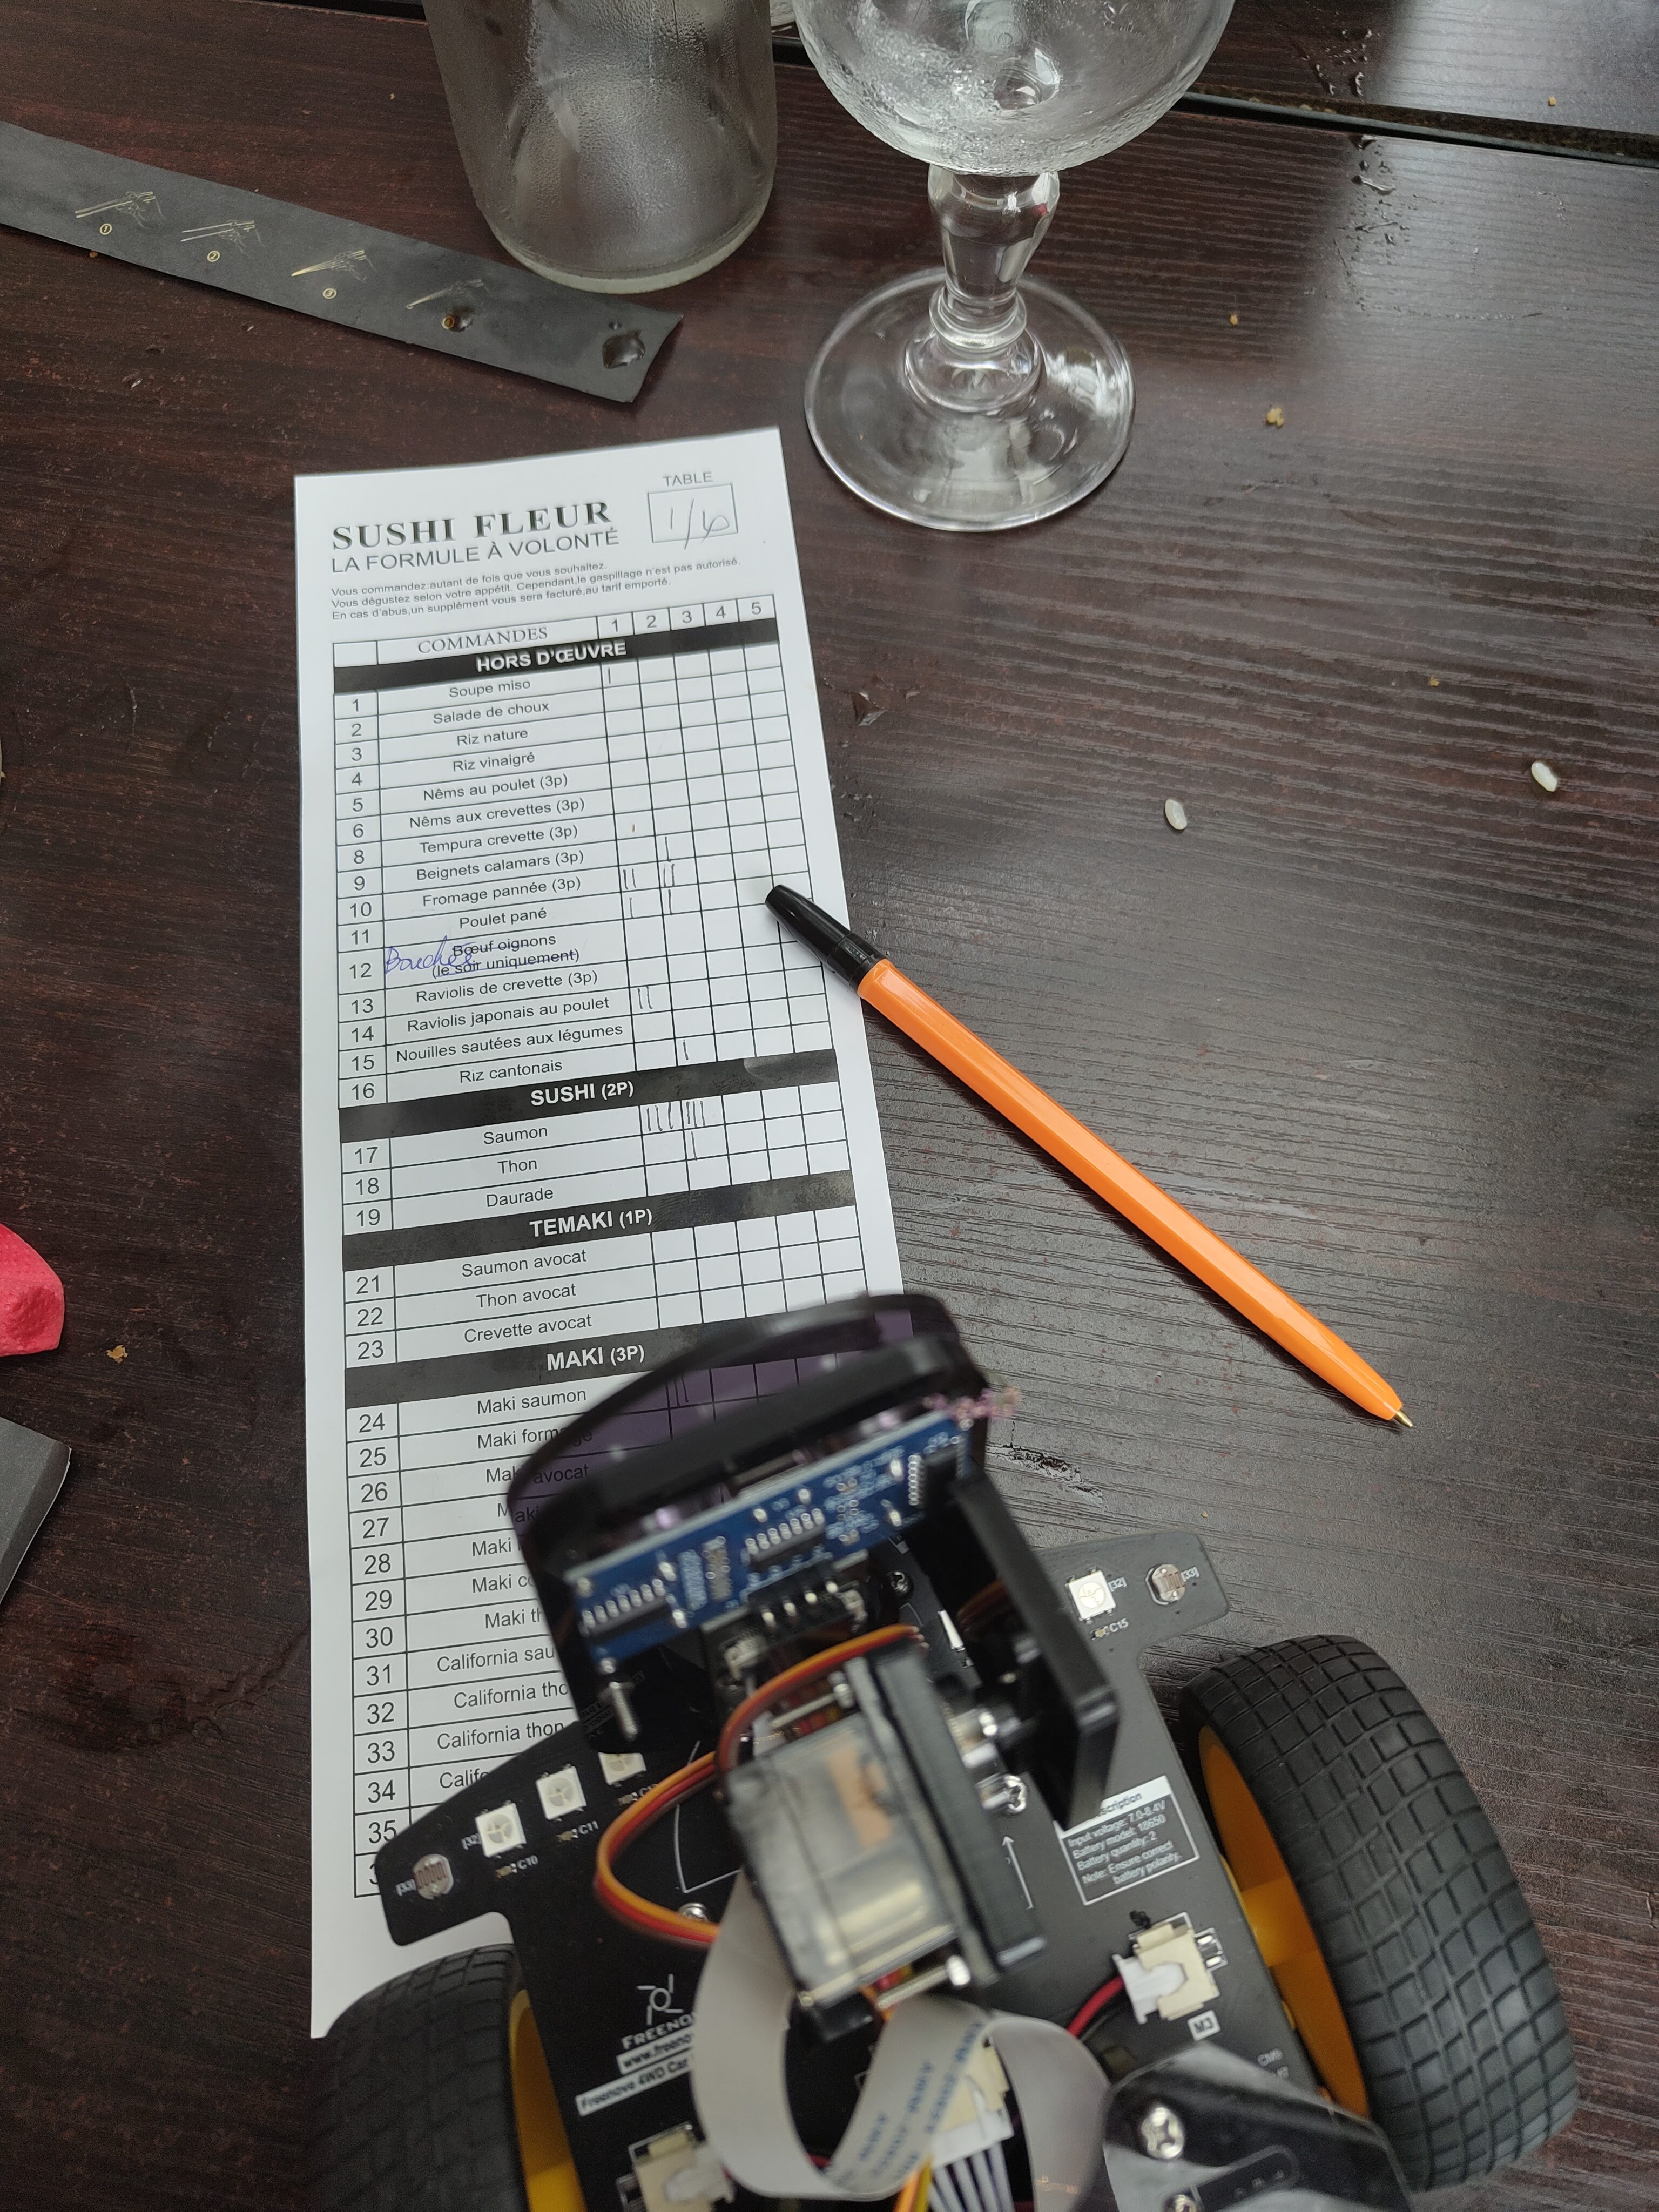 ① ② ③
TABLE
1/6
SUSHI FLEUR
LA FORMULE À VOLONTÉ
Vous commandez autant de fois que vous souhaitez.
Vous dégustez selon votre appétit. Cependant,le gaspillage n'est pas autorisé.
En cas d'abus,un supplément vous sera facturé,au tarif emporté.
COMMANDES 1 2 3 4 5
HORS D'ŒUVRE
1 Soupe miso
2 Salade de choux
3 Riz nature
4 Riz vinaigré
5 Nêms au poulet (3p)
6 Nêms aux crevettes (3p)
8 Tempura crevette (3p)
9 Beignets calamars (3p)
10 Fromage pannée (3p)
11 Poulet pané
12 Bœuf oignons
(le soir uniquement)
13 Raviolis de crevette (3p)
14 Raviolis japonais au poulet
15 Nouilles sautées aux légumes
16 Riz cantonais
SUSHI (2P)
17 Saumon
18 Thon
19 Daurade
TEMAKI (1P)
21 Saumon avocat
22 Thon avocat
23 Crevette avocat
MAKI (3P)
24 Maki saumon
25 Maki formage
26 Maki avocat
27 Maki
28 Maki
29 Maki
30 Maki
31 California
32 California
33 California thon
34
35
[32] [33]
C15
[33] [32] C10 C11
Description
Input voltage: 7.0-8.4V
Battery model: 18650
Battery quantity: 2
Note: Ensure correct
battery polarity.
FREENOVE
Freenove 4WD Car
M3